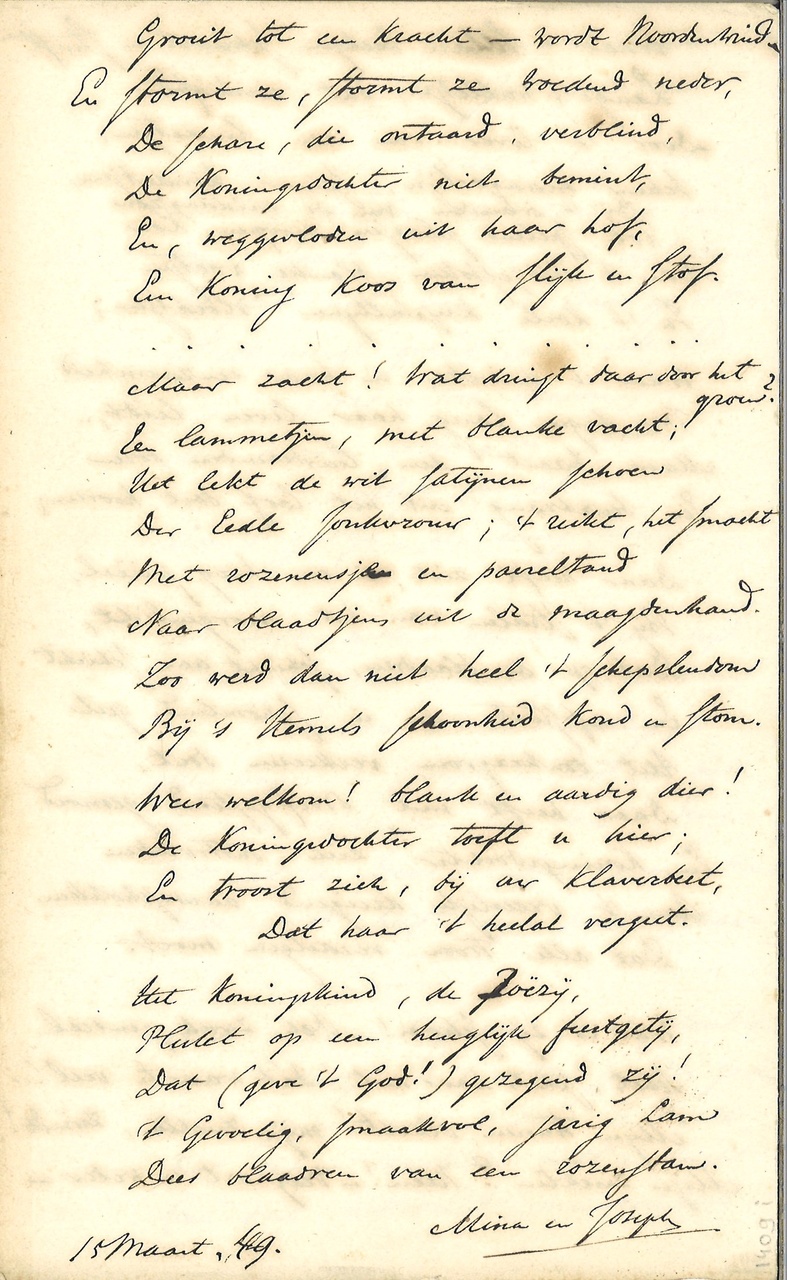 Groeit tot een kracht — wordt Noordenwind.
En stormt ze, stormt ze woedend neder,
De schare, die ontaard, verblind,
De Koningsdochter niet bemint,
En, weggevloden uit haar hof,
Een Koning koos van slijk en stof.
. . . . . . . . .
Maar zacht! Wat dringt daar door het
groen?
Een lammetjen, met blanke vacht;
Het lekt de wit satijnen schoen
Der Eedle Jonkvrouw; 't reikt, het smacht
Met rozeneusjen en paereltand
Naar blaadtjens uit de maagdenhand.
Zoo werd dan niet heel 't schepslendom
Bij 's Hemels schoonheid koud en stom.
Wees welkom! blank en aardig dier!
De Koningsdochter toeft u hier;
En troost zich, bij uw klaverbeet,
Dat haar 't heelal vergeet.
Het Koningskind, de Poëzij,
Plukt op een heuglijk feestgetij,
Dat (geve 't God!) gezegend zij!
't Gevoelig, smaakvol, jarig Lam
Dees blaadren van een rozenstam.
Mina en Joseph
15 Maart. 49.
1409 i